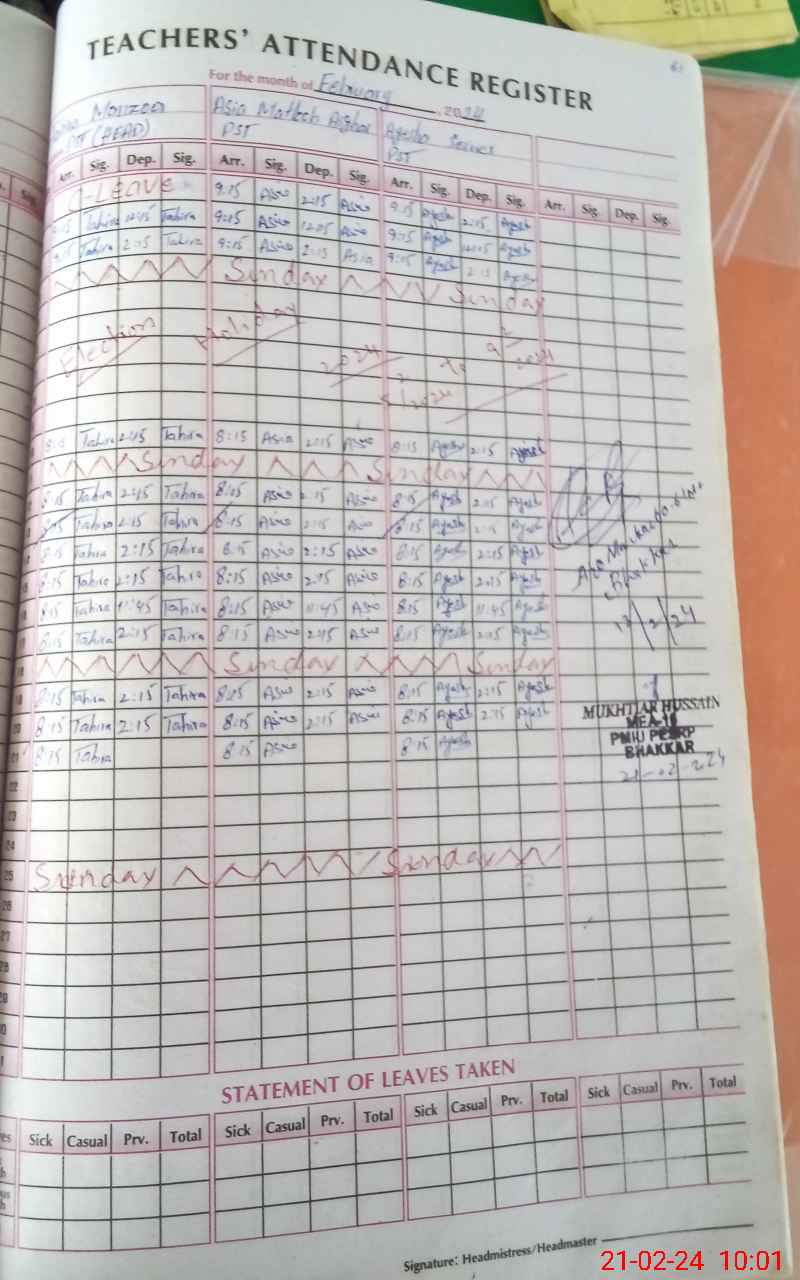 TEACHERS' ATTENDANCE REGISTER
For the month of February, 2024
PST (HEAD) PST PST
Arr. Sig. Dep. Sig. Arr. Sig. Dep. Sig. Arr. Sig. Dep. Sig. Arr. Sig. Dep. Sig.
C-Leave 9:15 Asia 2:15 Asia 9:15 Ayesh 2:15 Ayesh
Tahira 12:15 Tahira 9:15 Asia 12:05 Asia 9:15 Ayesh Ayesh
Tahira 2:15 Tahira 9:15 Asia 2:15 Asia 9:15 Ayesh 2:15 Ayesh
Sunday Sunday
Election Holiday 2024 to 2024
8:15 Tahira 2:45 Tahira 8:15 Asia 2:15 Asia 8:15 Ayesh 2:15 Ayesh
Sunday Sunday
8:15 Tahira 2:45 Tahira 8:15 Asia 2:15 Asia 8:15 Ayesh 2:15 Ayesh
8:15 Tahira 2:15 Tahira 8:15 Asia 2:15 Asia 8:15 Ayesh 2:15 Ayesh
8:15 Tahira 2:15 Tahira 8:15 Asia 2:15 Asia 8:15 Ayesh 2:15 Ayesh
8:15 Tahira 2:15 Tahira 8:15 Asia 2:15 Asia 8:15 Ayesh 2:15 Ayesh
8:15 Tahira 11:45 Tahira 8:15 Asia 11:45 Asia 8:15 Ayesh 11:45 Ayesh
8:15 Tahira 2:15 Tahira 8:15 Asia 2:15 Asia 8:15 Ayesh 2:15 Ayesh
Bhakkar
Sunday Sunday
8:15 Tahira 2:15 Tahira 8:15 Asia 2:15 Asia 8:15 Ayesh 2:15 Ayesh
20 8:15 Tahira 2:15 Tahira 8:15 Asia 2:15 Asia 8:15 Ayesh 2:15 Ayesh
21 8:15 Tahira 8:15 Asia 8:15 Ayesh
MUKHTIAR HUSSAIN
PMIU PESRP
BHAKKAR
21-02-224
22
23
24
25 Sunday Sunday
26
27
28
29
STATEMENT OF LEAVES TAKEN
Sick Casual Prv. Total Sick Casual Prv. Total Sick Casual Prv. Total Sick Casual Prv. Total
Signature: Headmistress/Headmaster
21-02-24 10:01